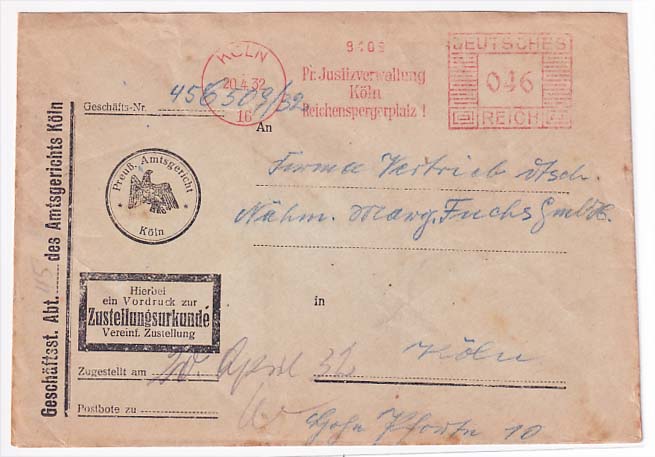 KÖLN
20.4.32
16
9409
Pr. Justizverwaltung
Köln
Reichenspergerplatz 1
DEUTSCHES
046
REICH
Geschäfts-Nr. 45C509/32
An
Firma Vertrieb dtsch.
Nähm. Marg. Fuchs GmbH.
Preuß. Amtsgericht
Köln
Geschäftsst. Abt. 45 des Amtsgerichts Köln
Hierbei
ein Vordruck zur
Zustellungsurkunde
Vereinf. Zustellung
in
Köln
Zugestellt am 20. April 32
Postbote zu
Hohe Pforte 10